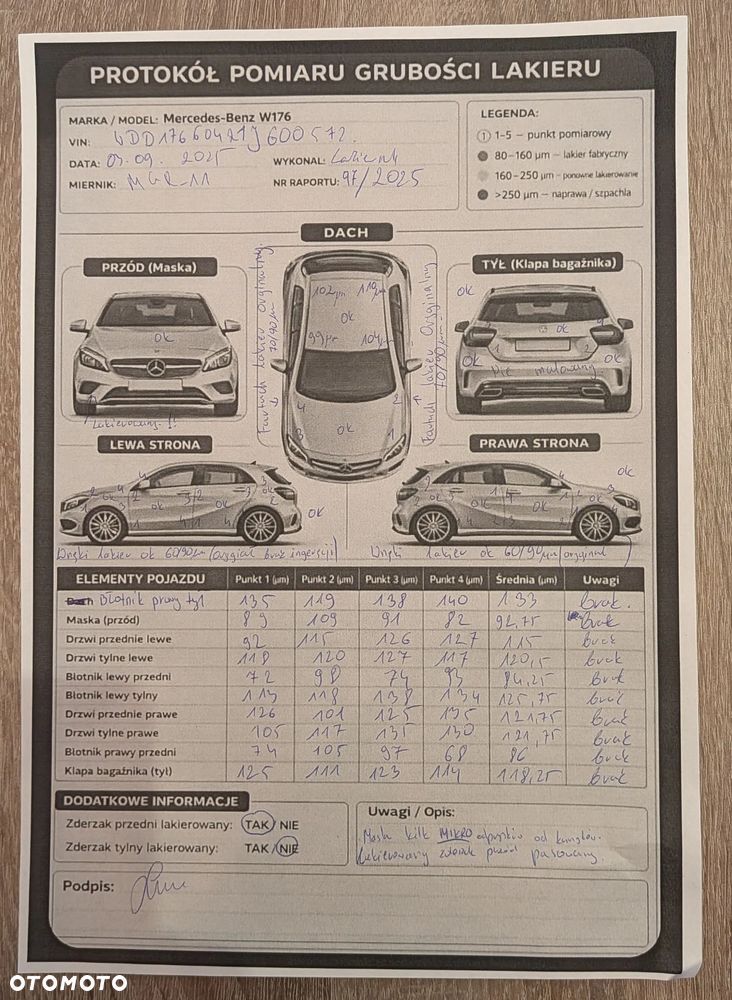 PROTOKÓŁ POMIARU GRUBOŚCI LAKIERU
MARKA / MODEL: Mercedes-Benz W176
VIN: WDD17660421J600572
DATA: 03.09.2025 WYKONAŁ:
MIERNIK: MGR-11 NR RAPORTU: 97/2025
LEGENDA:
1 1-5 – punkt pomiarowy
80-160 μm – lakier fabryczny
160-250 μm – ponowne lakierowanie
>250 μm – naprawa / szpachla
DACH
PRZÓD (Maska)
OK
Lakierowany!!
102μm 119μm
OK
99μm 104μm
4 2
3 OK 1
lakier oryginalny 70/90μm
lakier oryginalny 70/90μm
TYŁ (Klapa bagażnika)
OK
OK
1 2
OK OK
Nie malowany
LEWA STRONA
OK
PRAWA STRONA
OK
lakier ok 60/90μm (oryginał brak ingerencji)
lakier ok 60/90μm (oryginał)
ELEMENTY POJAZDU Punkt 1 (μm) Punkt 2 (μm) Punkt 3 (μm) Punkt 4 (μm) Średnia (μm) Uwagi
Błotnik prawy tył 135 119 138 140 133 brak.
Maska (przód) 89 109 91 82 92,75 brak
Drzwi przednie lewe 92 115 126 127 115 brak
Drzwi tylne lewe 118 120 127 117 120,5 brak
Błotnik lewy przedni 72 98 74 93 84,25 brak
Błotnik lewy tylny 113 118 138 134 125,75 brak
Drzwi przednie prawe 126 101 125 135 121,75 brak
Drzwi tylne prawe 105 117 135 130 121,75 brak
Błotnik prawy przedni 74 105 97 68 86 brak
Klapa bagażnika (tył) 125 111 123 114 118,25 brak
DODATKOWE INFORMACJE
Zderzak przedni lakierowany: TAK / NIE
Zderzak tylny lakierowany: TAK / NIE
Uwagi / Opis:
Maska kilk MIKRO odprysków od kamyków.
Lakierowany zderzak przód pasowany.
Podpis:
OTOMOTO